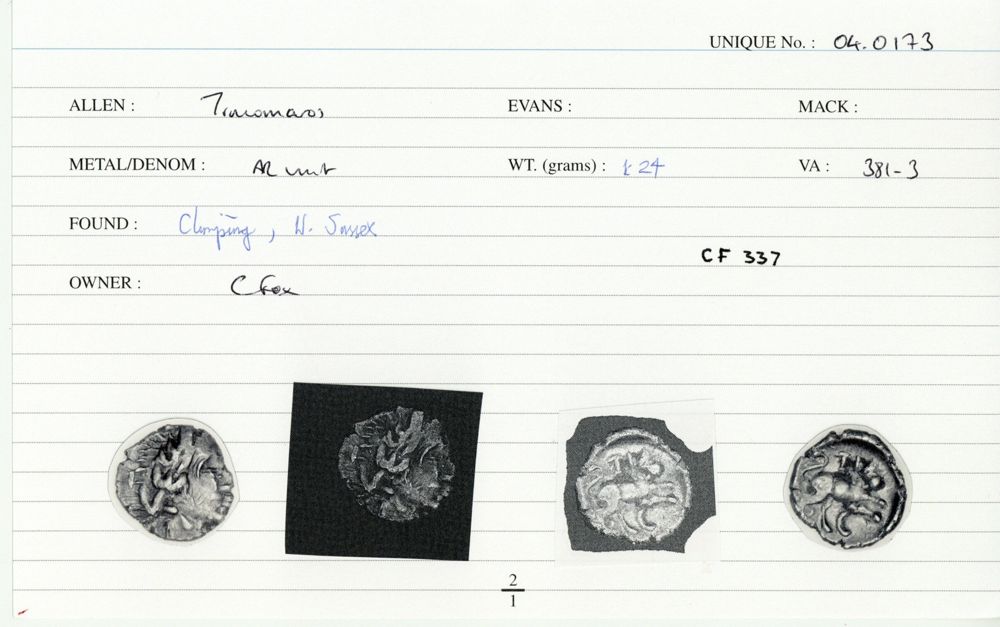 UNIQUE No. : 04.0173
ALLEN : Tincomaros EVANS : MACK :
METAL/DENOM : AR unit WT. (grams) : 1.24 VA : 381-3
FOUND : Climping, W. Sussex
CF 337
OWNER : C Fox
2
1